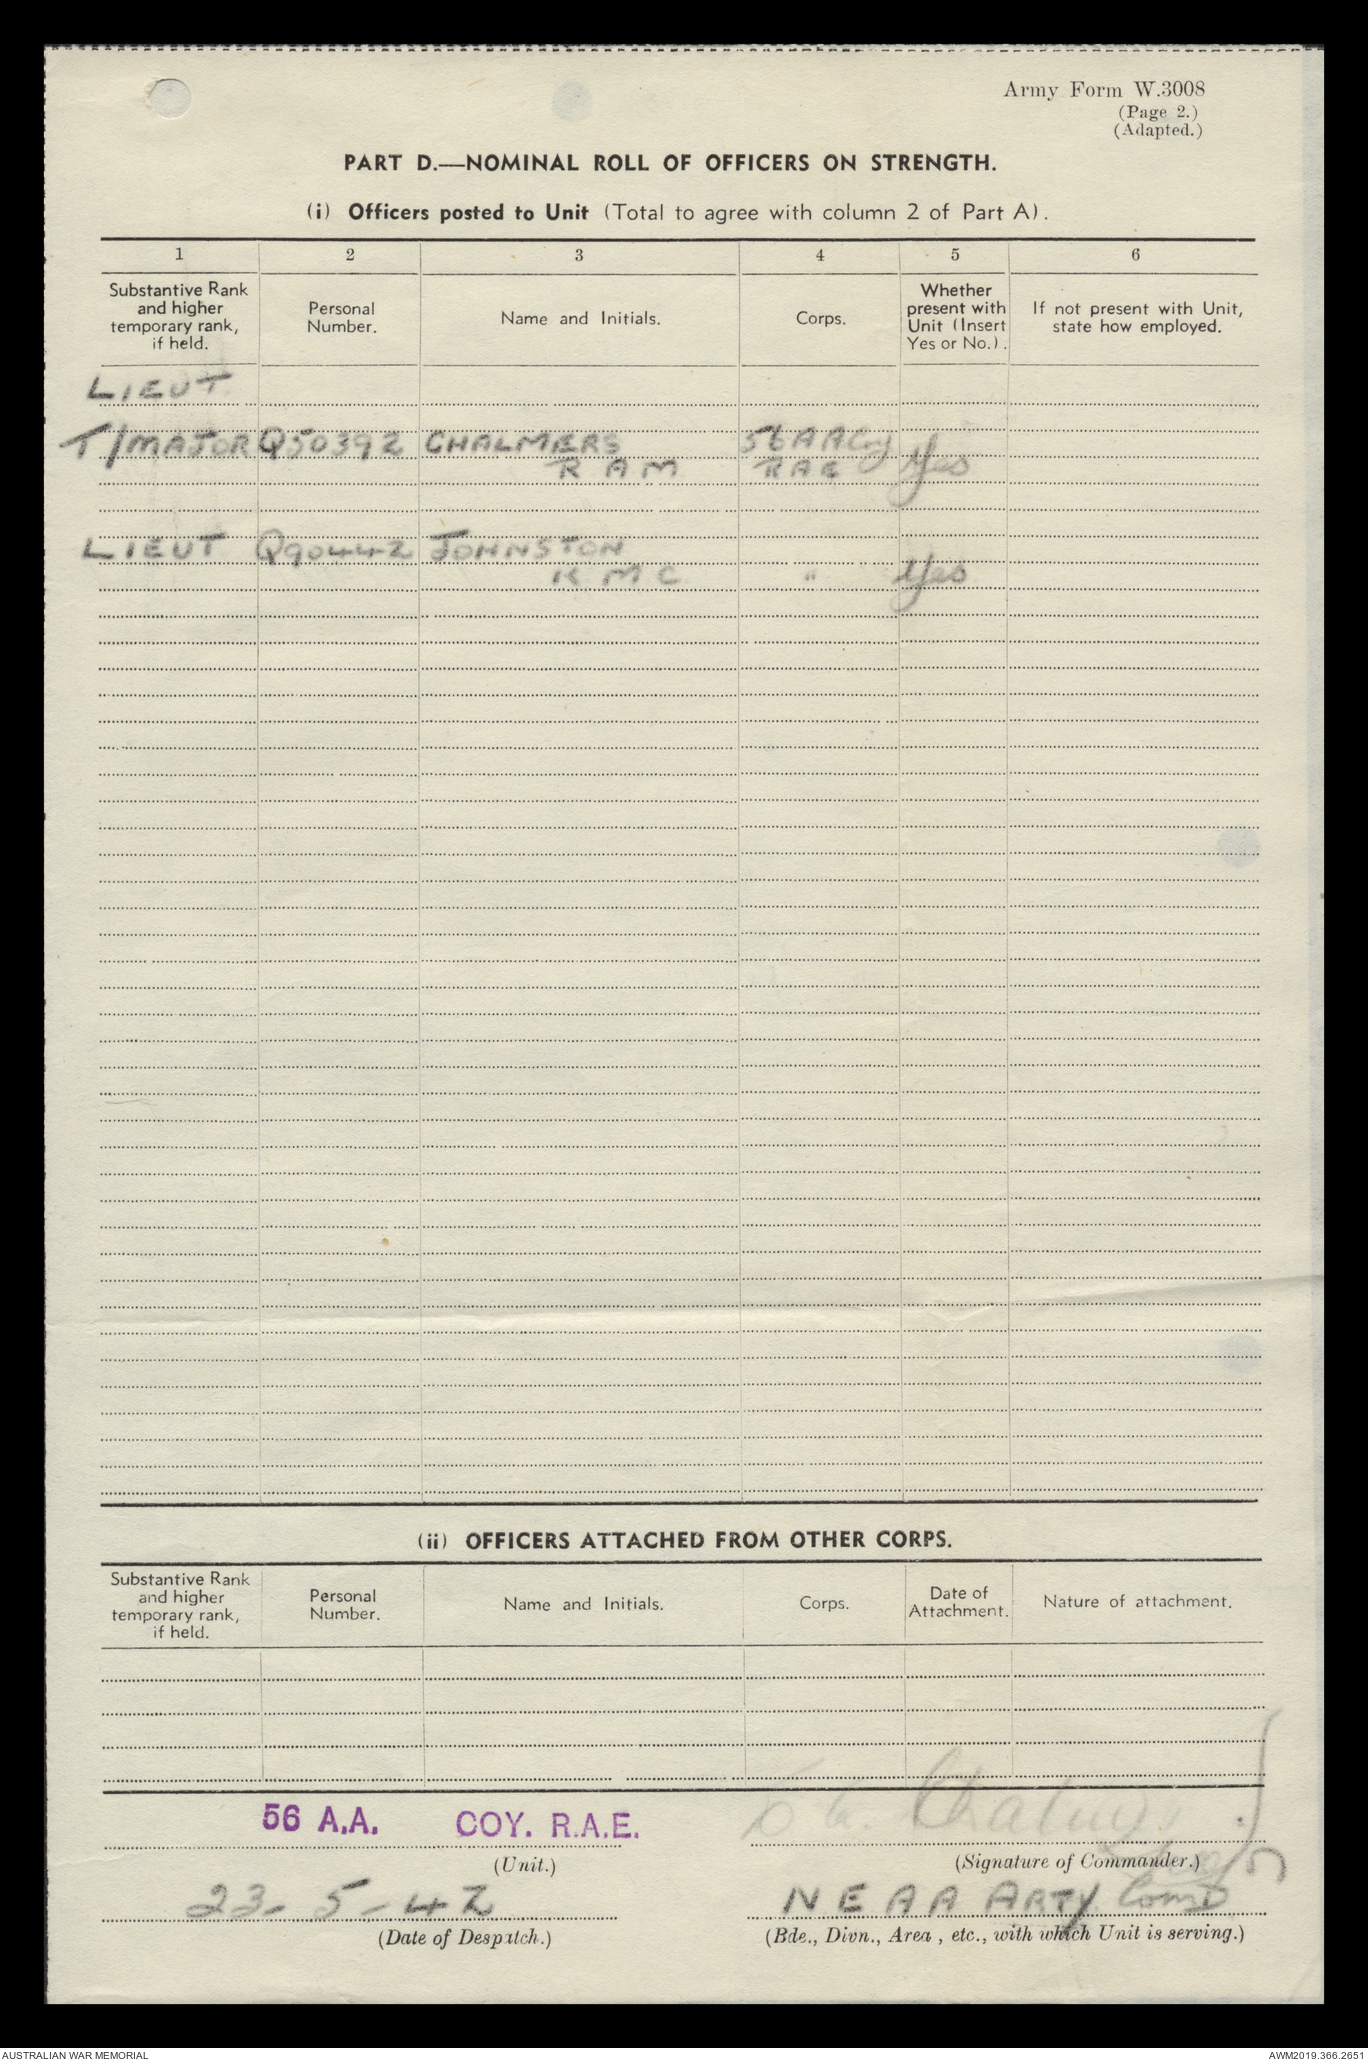 Army Form W.3008
(Page 2.)
(Adapted.)
PART D.—NOMINAL ROLL OF OFFICERS ON STRENGTH.
(i) Officers posted to Unit (Total to agree with column 2 of Part A).
1 2 3 4 5 6
Substantive Rank and higher temporary rank, if held. Personal Number. Name and Initials. Corps. Whether present with Unit (Insert Yes or No.). If not present with Unit, state how employed.
LIEUT
T/MAJOR Q50392 CHALMERS 56 AA Coy
R A M RAE Yes
LIEUT Q90442 JOHNSTON
K M C " Yes
(ii) OFFICERS ATTACHED FROM OTHER CORPS.
Substantive Rank and higher temporary rank, if held. Personal Number. Name and Initials. Corps. Date of Attachment. Nature of attachment.
56 A.A. COY. R.A.E. Chalmers
(Unit.) (Signature of Commander.)
23-5-42 N E A A ARTY. COMD
(Date of Despatch.) (Bde., Divn., Area, etc., with which Unit is serving.)
AUSTRALIAN WAR MEMORIAL AWM2019.366.2651